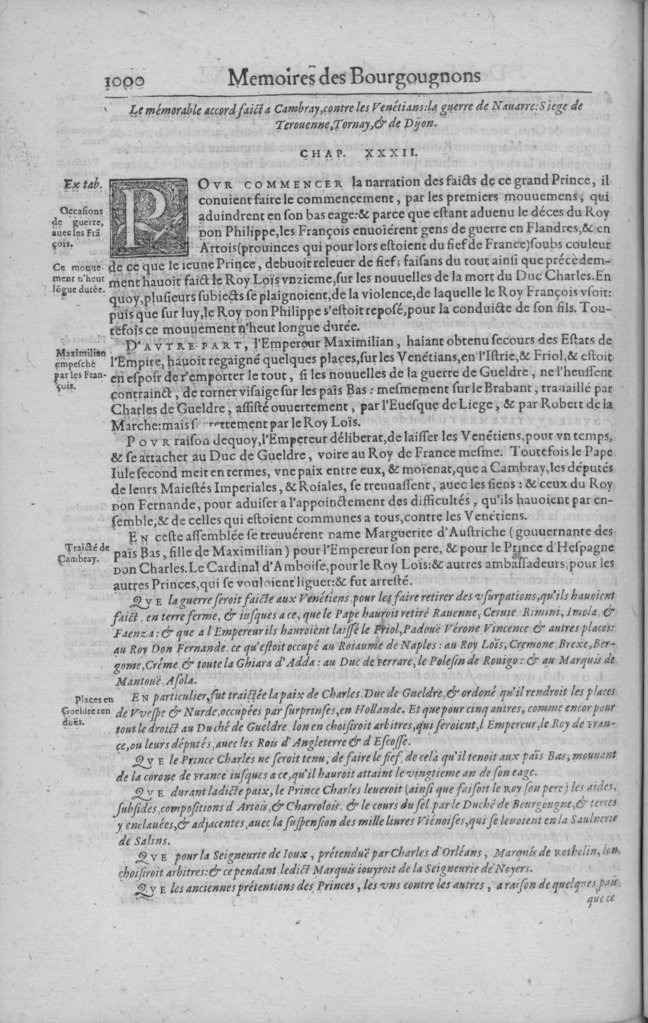 1000 Memoires des Bourgougnons
Le mémorable accord faict a Cambray, contre les Venétians: la guerre de Nauarre: Siege de
Terouenne, Tornay, & de Dijon.
CHAP. XXXII.
Ex tab.
Occasions
de guerre,
auec les Frã
çois.
Ce mouue-
ment n'heut
lõgue durée.
POVR COMMENCER la narration des faicts de ce grand Prince, il
conuient faire le commencement, par les premiers mouuemens, qui
aduindrent en son bas eage: & parce que estant aduenu le déces du Roy
DON Philippe, les François enuoiérent gens de guerre en Flandres, & en
Artois (prouinces qui pour lors estoient du fief de France) soubs couleur
de ce que le ieune Prince, debuoit releuer de fief; faisans du tout ainsi que précèdem-
ment hauoit faict le Roy Loïs vnzieme, sur les nouuelles de la mort du Duc Charles. En
quoy, plusieurs subiects se plaignoient, de la violence, de laquelle le Roy François vsoit:
puis que sur luy, le Roy DON Philippe s'estoit reposé, pour la conduicte de son fils. Tou-
tefois ce mouuement n'heut longue durée.
Maximilian
empesché
par les Fran-
çois.
D'AVTRE-PART, l'Empereur Maximilian, haiant obtenu secours des Estats de
l'Empire, hauoit regaigné quelques places, sur les Venétians, en l'Istrie, & Friol, & estoit
en espoir de r'emporter le tout, si les nouuelles de la guerre de Gueldre, ne l'heussent
contrainct, de torner visaige sur les païs Bas: mesmement sur le Brabant, trauaillé par
Charles de Gueldre, assisté ouuertement, par l'Euesque de Liege, & par Robert de la
Marche: mais rettement par le Roy Loïs.
POVR raison dequoy, l'Empereur déliberat, de laisser les Venétiens, pour vn temps,
& se attacher au Duc de Gueldre, voire au Roy de France mesme. Toutefois le Pape
Iule second meit en termes, vne paix entre eux, & moïenat, que a Cambray, les députés
de leurs Maiestés Imperiales, & Roiales, se treuuassent, auec les siens: & ceux du Roy
DON Fernande, pour aduiser a l'appoinctement des difficultés, qu'ils hauoient par en-
semble, & de celles qui estoient communes a tous, contre les Venétiens.
Traicté de
Cambray.
EN ceste assemblée se treuuérent Dame Marguerite d'Austriche (gouuernante des
païs Bas, fille de Maximilian) pour l'Empereur son pere, & pour le Prince d'Hespagne
DON Charles. Le Cardinal d'Amboise, pour le Roy Loïs: & autres ambassadeurs, pour les
autres Princes, qui se vouloient liguer: & fut arresté.
QVE la guerre seroit faicte aux Venétiens pour les faire retirer des vsurpations, qu'ils hauoient
faict, en terre ferme, & iusques a ce, que le Pape hauroit retiré Rauenne, Ceruie Rimini, Imola &
Faenza: & que a l'Empereur ils hauroient laissé le Friol, Padouë Vérone Vincence & autres places:
au Roy Don Fernande. ce qu'estoit occupé au Roiaume de Naples: au Roy Loïs, Cremone, Brexe, Ber-
gome, Créme & toute la Ghiara d'Adda: au Duc de Ferrare, le Polesin de Rouigo: & au Marquis de
Mantouë, Asola.
Places en
Gueldre ren
duës.
EN particulier, fut traictée la paix de Charles Duc de Gueldre, & ordoné qu'il rendroit les places
de Vvespe & Nurde, occupées par surprinses, en Hollande. Et que pour cinq autres, comme encor pour
tout le droict au Duché de Gueldre, lon en choisiroit arbitres, qui seroient, l'Empereur, le Roy de Fran-
ce, ou leurs députés, auec les Rois d'Angleterre & d'Escosse.
QVE le Prince Charles ne seroit tenu, de faire le fief, de celà qu'il tenoit aux païs Bas, mouuant
de la corone de France iusques a ce, qu'il hauroit attaint le vingtieme an de son eage.
QVE durant ladicte paix, le Prince Charles leueroit (ainsi que faisoit le Roy son pere) les aides,
subsides, compositions d'Artois, & Charrolois. & le cours du sel par le Duché de Bourgougne, & terres
y enclauées, & adjacentes, auec la suspension des mille liures Viénoises, qui se leuoient en la Saulnerie
de Salins.
QVE pour la Seigneurie de Ioux, prétenduë par Charles d'Orléans, Marquis de Rothelin, lon
choisiroit arbitres: & ce pendant ledict Marquis iouyroit de la Seigneurie de Noyers.
QVE les anciennes prétentions des Princes, les vns contre les autres, a raison de quelques païs
que ce